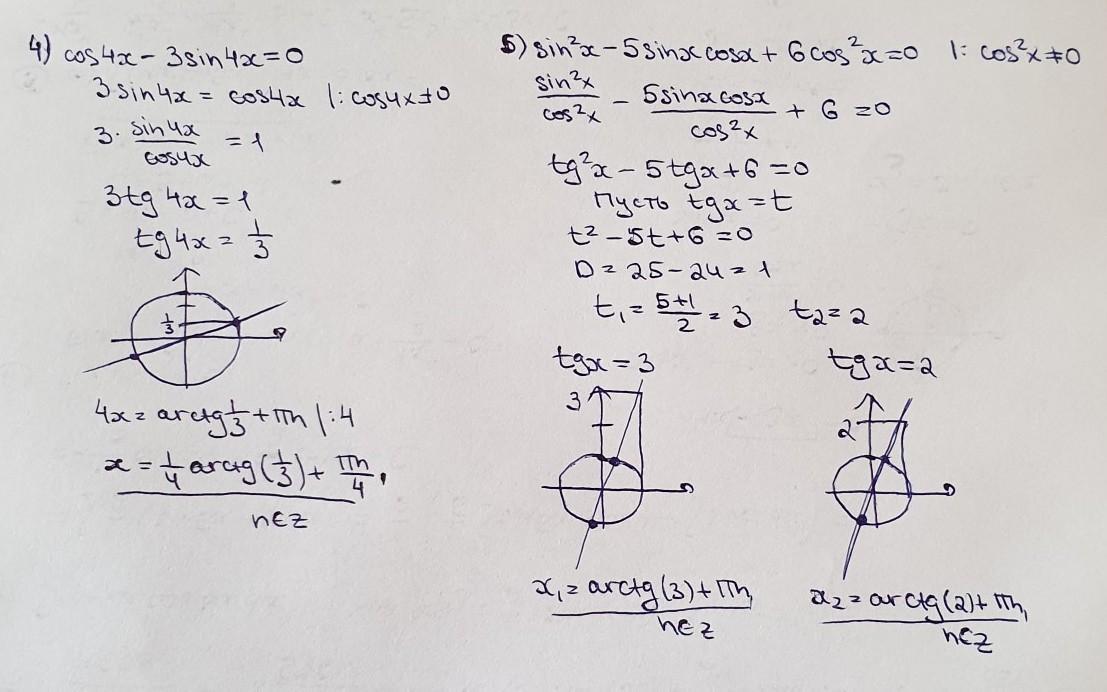 4) cos4x - 3sin4x = 0
3sin4x = cos4x |: cos4x ≠ 0
3 · sin4x / cos4x = 1
3tg 4x = 1
tg4x = 1/3
1/3
4x = arctg 1/3 + πn |: 4
x = 1/4 arctg(1/3) + πn/4,
n∈z
5) sin²x - 5sinx cosx + 6cos²x = 0 |: cos²x ≠ 0
sin²x / cos²x - 5sinx cosx / cos²x + 6 = 0
tg²x - 5tgx + 6 = 0
Пусть tgx = t
t² - 5t + 6 = 0
D = 25 - 24 = 1
t₁ = 5+1 / 2 = 3 t₂ = 2
tgx = 3
3
x₁ = arctg(3) + πn,
n∈z
tgx = 2
2
x₂ = arctg(2) + πn,
n∈z